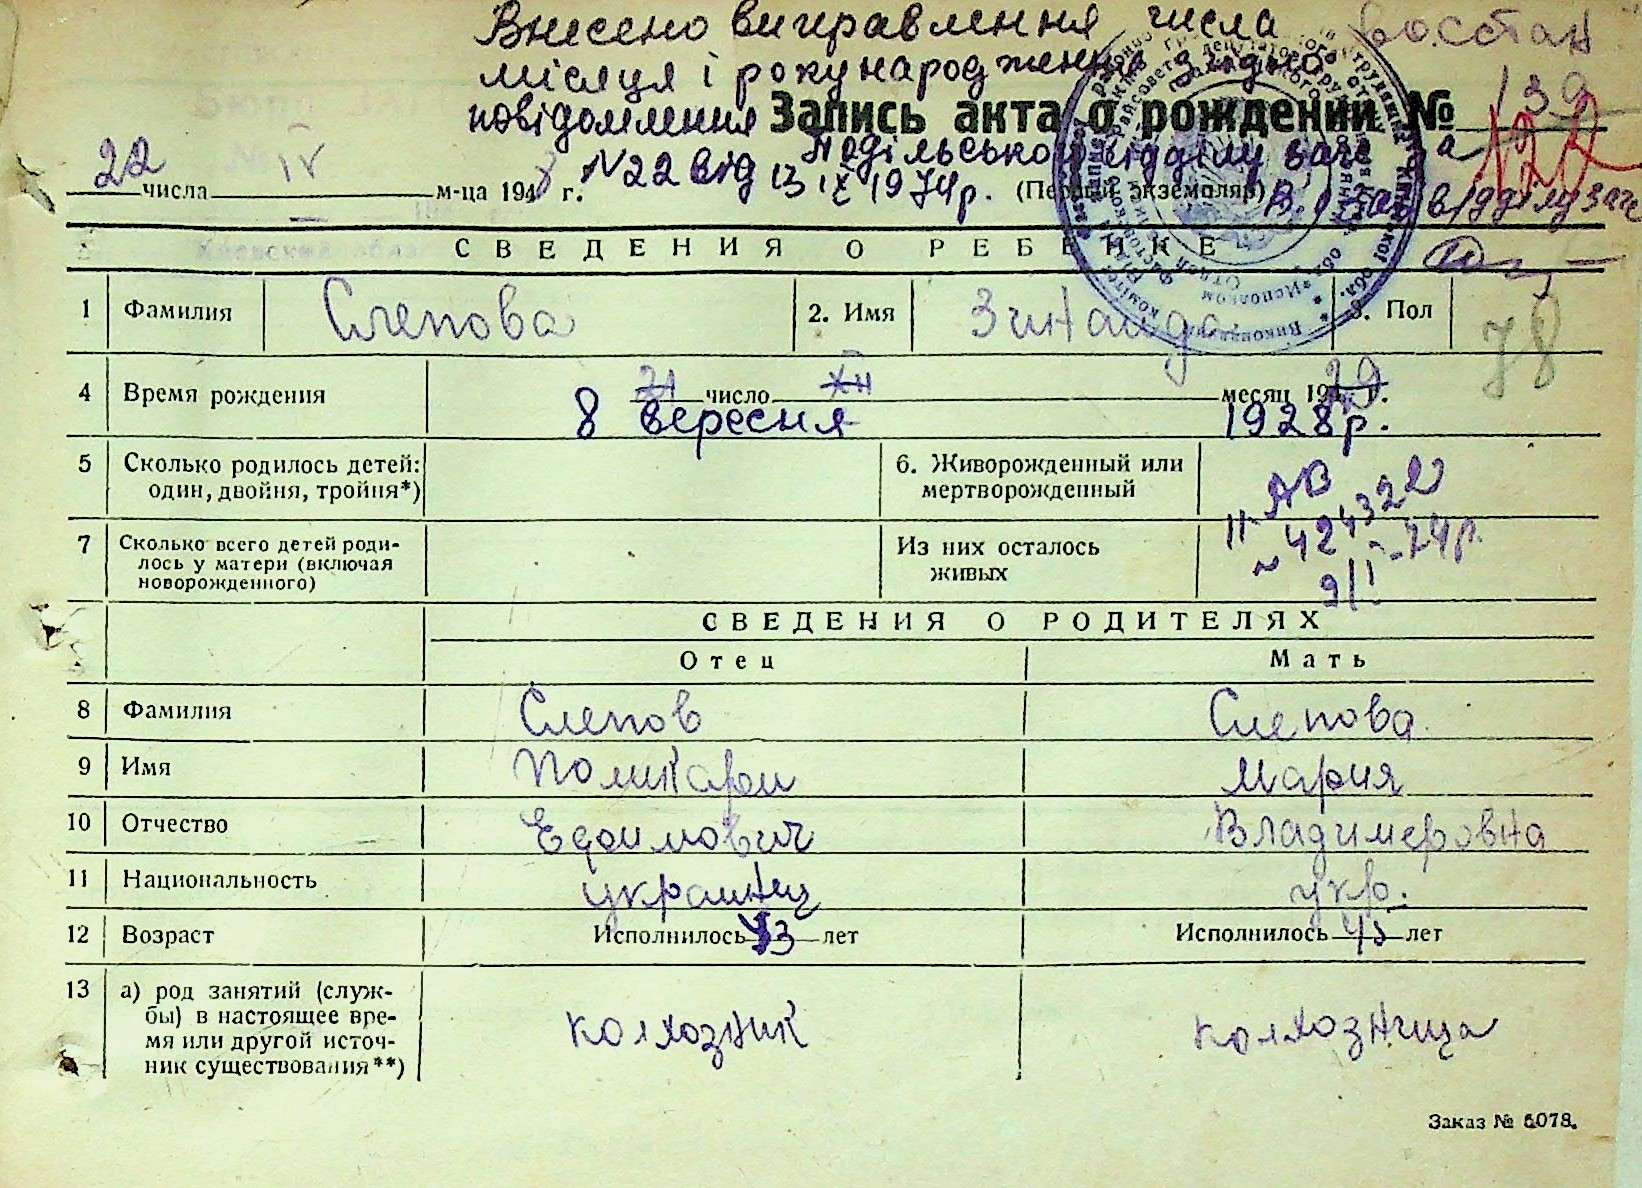 Внесено виправлення числа
Восстан
місяця і року народження згідно
повідомлення
Запись акта о рождении №
139
Подільського відділу загс
22 числа IV м-ца 194 г. N22 від 13 IX 1974р. (Первый экземпляр)
СВЕДЕНИЯ О РЕБЕНКЕ
1 Фамилия Слепова 2. Имя Зинаида 3. Пол
78
4 Время рождения 21 число XII месяц 19 29 г.
8 вересня 1928р.
5 Сколько родилось детей: один, двойня, тройня*)
6. Живорожденный или мертворожденный
7 Сколько всего детей роди-
лось у матери (включая
новорожденного)
Из них осталось
живых
II-АВ
№ 424322
9/I-74р.
СВЕДЕНИЯ О РОДИТЕЛЯХ
Отец Мать
8 Фамилия Слепов Слепова
9 Имя Поликарп Мария
10 Отчество Ефимович Владимеровна
11 Национальность украинец укр.
12 Возраст Исполнилось 43 лет Исполнилось 45 лет
13 а) род занятий (служ-
бы) в настоящее вре-
мя или другой источ-
ник существования**)
колхозник колхозница
Заказ № 6078.